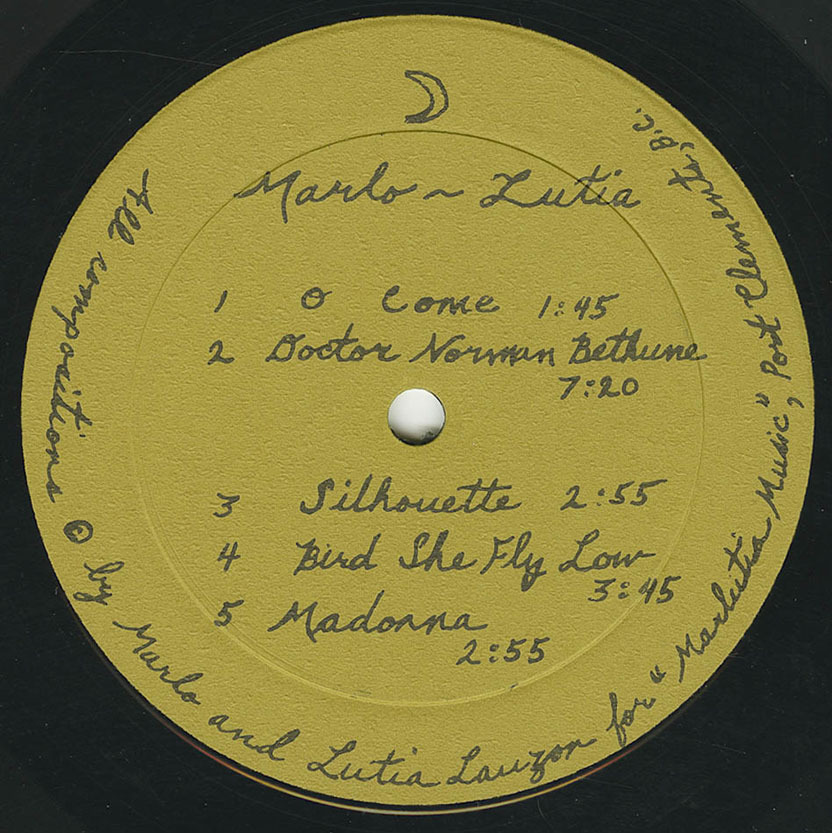 Marlo ~ Lutia
1 O Come 1:45
2 Doctor Norman Bethune
7:20
3 Silhouette 2:55
4 Bird She Fly Low
3:45
5 Madonna
2:55
All compositions © by Marlo and Lutia Lauzon for "Marlutia Music", Port Clements, B.C.